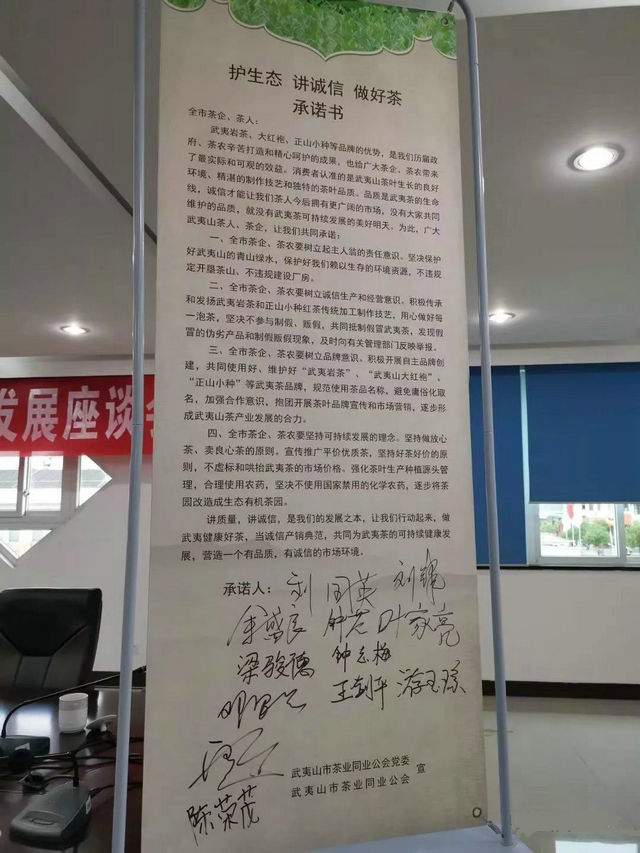 护生态 讲诚信 做好茶
承诺书
全市茶企、茶人：
武夷岩茶、大红袍、正山小种等品牌的优势，是我们历届政
府、茶农辛苦打造和精心呵护的成果，也给广大茶企、茶农带来
了最实际和可观的效益。消费者认准的是武夷山茶叶生长的良好
环境、精湛的制作技艺和独特的茶叶品质。品质是武夷茶的生命
线，诚信才能让我们茶人今后拥有更广阔的市场，没有大家共同
维护的品质，就没有武夷茶可持续发展的美好明天。为此，广大
武夷山茶人、茶企，让我们共同承诺：
一、全市茶企、茶农要树立起主人翁的责任意识。坚决保护
好武夷山的青山绿水，保护好我们赖以生存的环境资源，不违规
定开垦茶山、不违规建设厂房。
二、全市茶企、茶农要树立诚信生产和经营意识。积极传承
和发扬武夷岩茶和正山小种红茶传统加工制作技艺，用心做好每
一泡茶，坚决不参与制假、贩假，共同抵制假冒武夷茶，发现假
冒的伪劣产品和制假贩假现象，及时向有关管理部门反映举报。
三、全市茶企、茶农要树立品牌意识。积极开展自主品牌创
建，共同使用好、维护好“武夷岩茶”、“武夷山大红袍”、
“正山小种”等武夷茶品牌，规范使用茶品名称，避免庸俗化取
名，加强合作意识，抱团开展茶叶品牌宣传和市场营销，逐步形
成武夷山茶产业发展的合力。
四、全市茶企、茶农要坚持可持续发展的理念。坚持做放心
茶、卖良心茶的原则。宣传推广平价优质茶，坚持好茶好价的原
则，不虚标和哄抬武夷茶的市场价格。强化茶叶生产种植源头管
理，合理使用农药，坚决不使用国家禁用的化学农药，逐步将茶
园改造成生态有机茶园。
讲质量，讲诚信，是我们的发展之本，让我们行动起来，做
武夷健康好茶，当诚信产销典范，共同为武夷茶的可持续健康发
展，营造一个有品质，有诚信的市场环境。
承诺人：刘国英 刘锋
余盛良 叶家亮
梁骏德 钟志梅
王剑平 游玉琼
陈荣茂
武夷山市茶业同业公会党委
武夷山市茶业同业公会 宣
发展座谈会